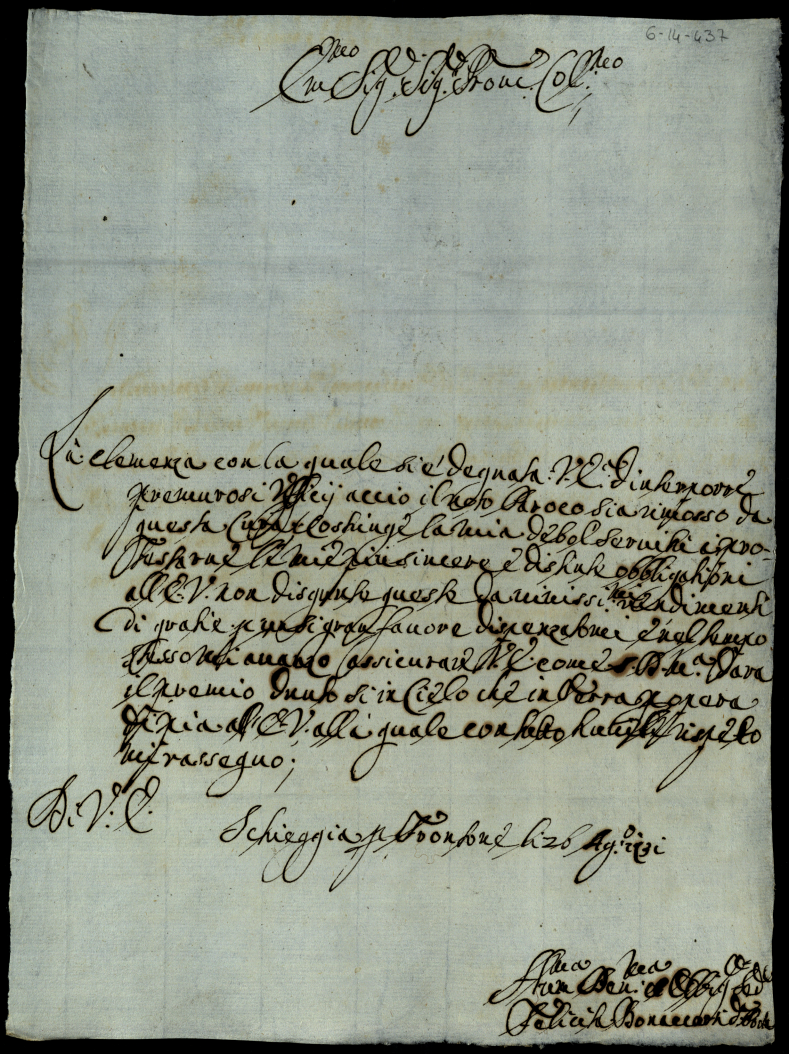 6-14-437
Em.mo Sig.r Sig.r Prone Col.mo
La clemenza con la quale si é degnata V. E.a d'interporre
premurosi Ufficij accio il noto Paroco sia rimosso da
questa Cura la mia debol servitù a pro-
testarne le mie più sincere é distinte obbligationi
all'E. V. non disgiunte queste da vivissimi rendimenti
di gratie p un si gran favore dispenzatomi é nel tempo
stesso mi avanzo assicurare V. E. come S. D. M.a darà
il premio dunto si in Cielo ché in Terra p opera
si pia all'E. V. alla quale con tutto rispetto
mi rassegno;
Di V. E.
Scheggia p Pontone li 26 Ag.o 1731
Hum.ma Dev.ma Obbl
Felicita Bonaccorsi